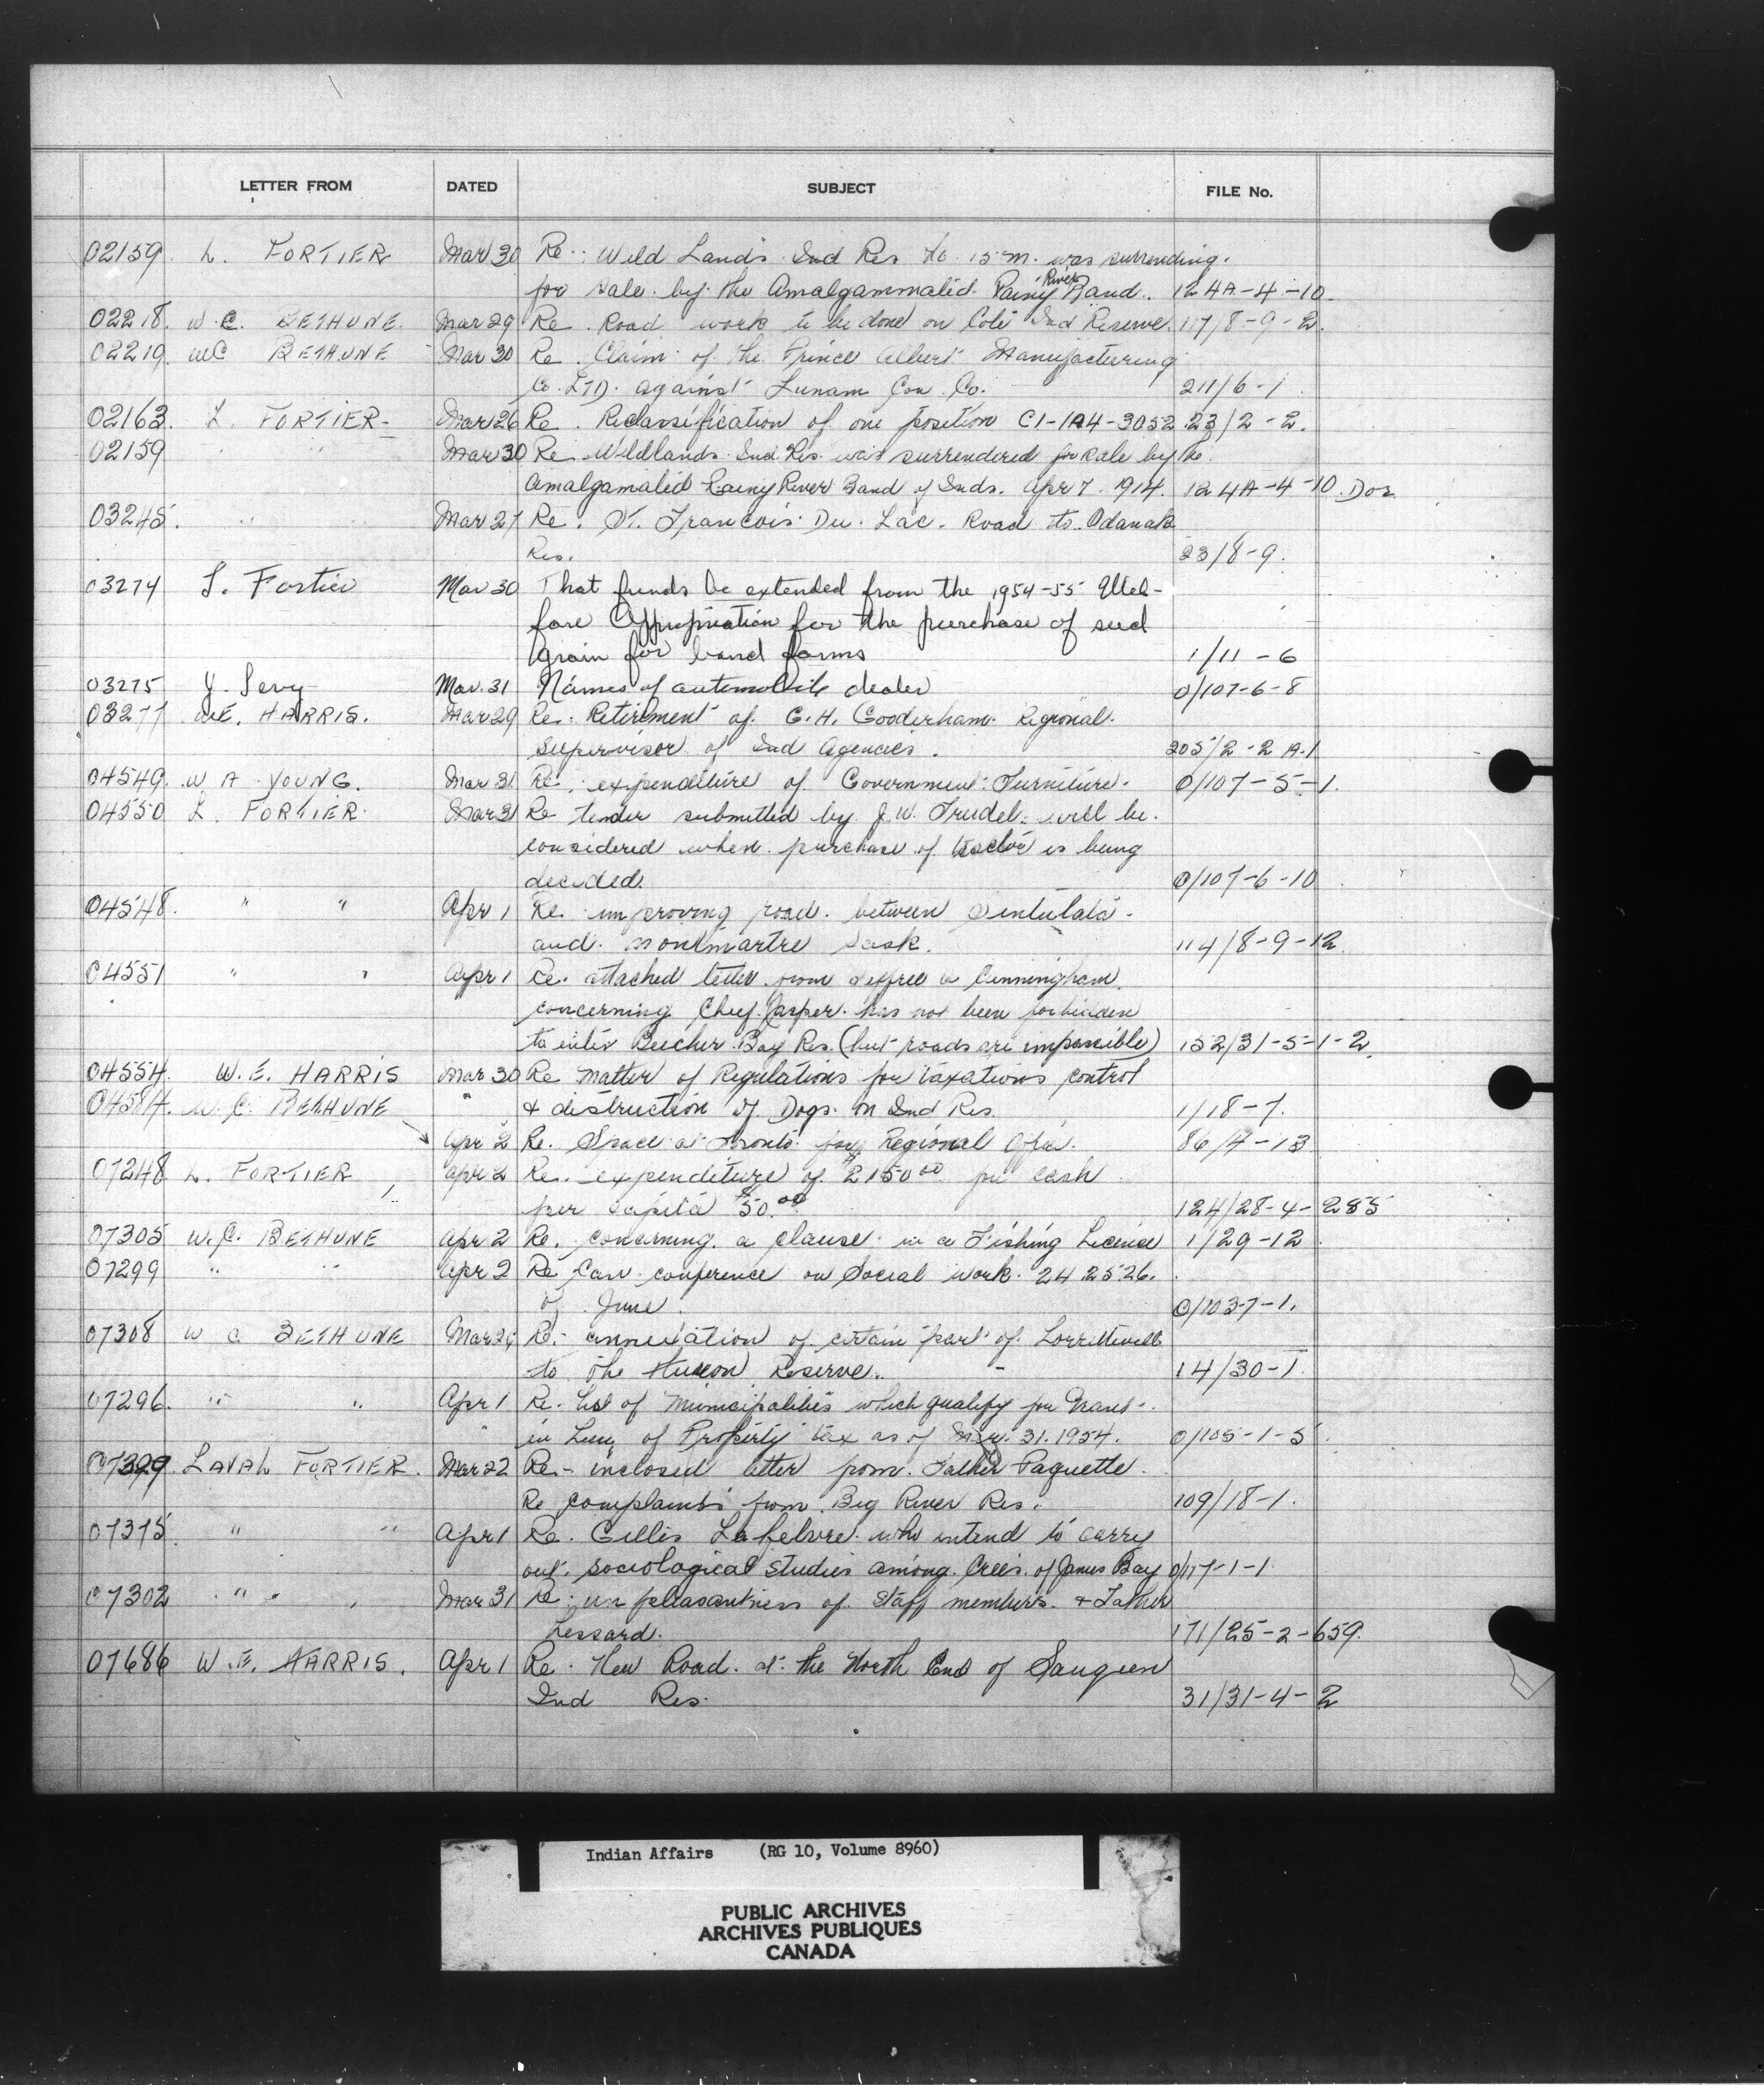 LETTER FROM DATED SUBJECT FILE No.
02159 L. FORTIER Mar 30 Re: Wild Lands Ind Res No. 15 M. was surrending
for sale by the Amalgammalid Rainy River Band. 124A-4-10
02218. W.C. BETHUNE Mar 29 Re. Road work to be done on Cote Ind Reserve. 117/8-9-2.
02219. WC BETHUNE Mar 30 Re. Claim of the Prince Albert Manufacturing
Co. LTD. against Lunam Con. Co. 211/6-1
02163. L. FORTIER Mar 26 Re. Reclassification of one position C1-1A4-3052 23/2-2.
02159 " " Mar 30 Re Wildlands Ind Res. was surrendered for sale by the
Amalgamalid Rainy River Band of Inds. Apr 7. 1914. 124A-4-10. Dos
03245. " " Mar 27 Re. St. Francois Du. Lac. Road to Odanak
Res. 23/8-9.
03274 L. Fortier Mar 30 That funds be extended from the 1954-55 Wel-
fare Appropriation for the purchase of seed
grain for band farms 1/11-6
03275 J. Levy Mar. 31 Names of automobile dealer 0/107-6-8
03277 W.E. HARRIS. Mar 29 Re. Retirement of G.H. Gooderham Regional
Supervisor of Ind Agencies. 205/2-2 A.1
04549. W A YOUNG. Mar 31. Re. expenditure of Government Furniture. 0/107-5-1.
04550 L. FORTIER. Mar 31 Re tender submitted by J.W. Trudel. will be
considered when purchase of tractor is being
decided. 0/107-6-10
04548. " " Apr 1 Re. improving road. between Sintulata
and Montmartre Sask. 114/8-9-12.
04551 " " Apr 1 Re. attached letter from a Cunningham
concerning Chief Casper has not been forbidden
to enter Beecher Bay Res. (but roads are impassible) 152/31-5-1-2.
04554. W.E. HARRIS Mar 30 Re Matter of Regulations for taxations control
04584. W.C. BETHUNE " & distruction of Dogs on Ind Res. 1/18-7.
Apr 2 Re. Space at Toronto for Regional Office. 86/4-13
07248 L. FORTIER Apr 2 Re. expenditure of $2150.00 for cash
per capita $50.00 124/28-4-285
07305 W.C. BETHUNE Apr 2 Re. concerning a clause in a Fishing License 1/29-12
07299 " " Apr 2 Re Can. conference on Social work. 24 25 26.
of June. 0/103-7-1.
07308 W C BETHUNE Mar 24 Re: annexation of certain part of Lorrittevill
to the Huron Reserve. 14/30-1
07296. " " Apr 1 Re. list of Municipalities which qualify for Grant
in Lieu of Property tax as of Mar. 31. 1954. 0/105-1-5
07329 LAVAL FORTIER. Mar 22 Re- inclosed letter from Father Paquette.
Re complaints from Big River Res. 109/18-1.
07375 " " Apr 1 Re. Gilles Lafebvre who intend to carry
out sociological studies among Crees of James Bay 0/117-1-1
07302 " " Mar 31 Re. unpleasantness of Staff members & Father
Lessard. 171/25-2-659.
07686 W.E. HARRIS. Apr 1 Re. New Road. at the North End of Saugeen
Ind Res. 31/31-4-2
Indian Affairs (RG 10, Volume 8960)
PUBLIC ARCHIVES
ARCHIVES PUBLIQUES
CANADA